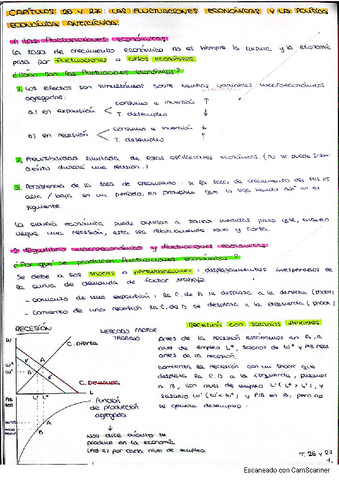 CAPÍTULOS 26 Y 27: LAS FLUCTUACIONES ECONÓMICAS Y LA POLÍTICA
ECONÓMICA ANTICÍCLICA
Las fluctuaciones económicas:
La tasa de crecimiento económico no es siempre la misma y la economía
pasa por fluctuaciones o ciclos económicos.
¿Cómo son las fluctuaciones económicas?
1. Los efectos son simultáneos sobre muchas variables macroeconómicas
agregadas:
a) en expansión < consumo e inversión ↑
T. desempleo ↓
b) en recesión < consumo e inversión ↓
T. desempleo ↑
2. Previsibilidad limitada de estas oscilaciones económicas. (no se puede
cuánto durará una recesión...)
3. Persistencia de la tasa de crecimiento: si la tasa de crecimiento del PIB es
alta / baja en un período, es probable que lo siga siendo en el
siguiente
La política económica puede ayudar a tomar medidas para que, cuando
llegue una recesión, esta sea relativamente leve y corta.
Equilibrio macroeconómico y fluctuaciones económicas:
¿Por qué se producen fluctuaciones económicas?
Se debe a los shocks o perturbaciones: desplazamientos inesperados de
la curva de demanda de factor trabajo.
- comienzo de una expansión: la C. de D. se desplaza a la derecha (shock)
- comienzo de una recesión: la C. de D. se desplaza a la izquierda (shock)
RECESIÓN
MERCADO
TRABAJO
Recesión con salarios flexibles
W
C. Oferta
C. Demanda
W*
W'
A
B
L' L*
L
Función
de producción
agregada
PIB
A
B
Nos dice cuánto se
produce en la economía
(PIB) por cada nivel de empleo
Antes de la recesión estaríamos en A, a
nivel de empleo L*, salario de W* y PIB real
antes de la recesión.
Comienza la recesión con un shock que
desplaza la C.D. a la izquierda, pasamos
a B, con nivel de empleo L' (L* > L'), y
salario W' (W' < W*) y PIB en B, pero no
se genera desempleo.
T. 26 y 27
1.
Escaneado con CamScanner